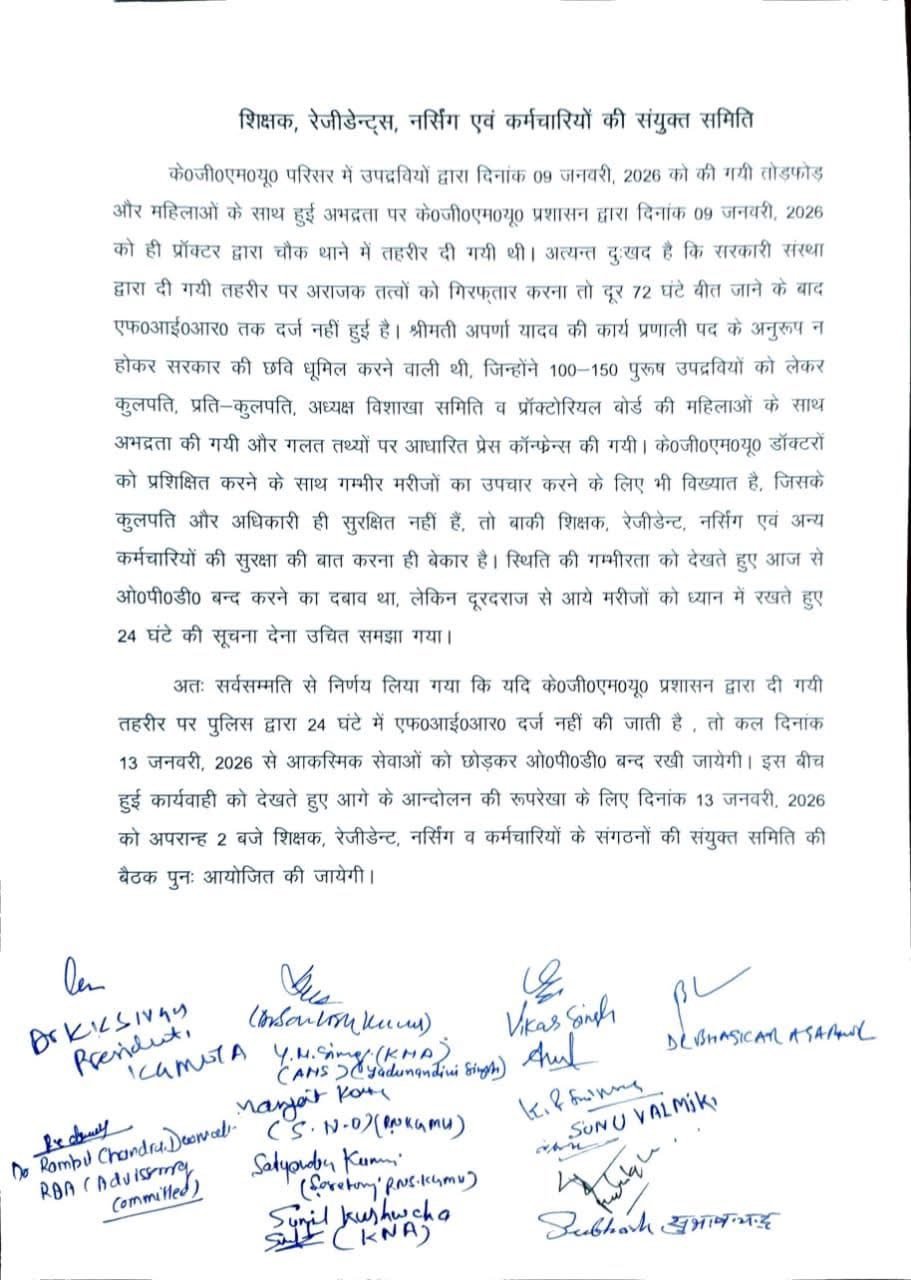 शिक्षक, रेजीडेन्ट्स, नर्सिंग एवं कर्मचारियों की संयुक्त समिति
के0जी0एम0यू0 परिसर में उपद्रवियों द्वारा दिनांक 09 जनवरी, 2026 को की गयी तोड़फोड़
और महिलाओं के साथ हुई अभद्रता पर के0जी0एम0यू0 प्रशासन द्वारा दिनांक 09 जनवरी, 2026
को ही प्रॉक्टर द्वारा चौक थाने में तहरीर दी गयी थी। अत्यन्त दुःखद है कि सरकारी संस्था
द्वारा दी गयी तहरीर पर अराजक तत्वों को गिरफ्तार करना तो दूर 72 घंटे बीत जाने के बाद
एफ0आई0आर0 तक दर्ज नहीं हुई है। श्रीमती अपर्णा यादव की कार्य प्रणाली पद के अनुरूप न
होकर सरकार की छवि धूमिल करने वाली थी, जिन्होंने 100–150 पुरूष उपद्रवियों को लेकर
कुलपति, प्रति–कुलपति, अध्यक्ष विशाखा समिति व प्रॉक्टोरियल बोर्ड की महिलाओं के साथ
अभद्रता की गयी और गलत तथ्यों पर आधारित प्रेस कॉन्फेन्स की गयी। के0जी0एम0यू0 डॉक्टरों
को प्रशिक्षित करने के साथ गम्भीर मरीजों का उपचार करने के लिए भी विख्यात है, जिसके
कुलपति और अधिकारी ही सुरक्षित नहीं हैं, तो बाकी शिक्षक, रेजीडेन्ट, नर्सिंग एवं अन्य
कर्मचारियों की सुरक्षा की बात करना ही बेकार है। स्थिति की गम्भीरता को देखते हुए आज से
ओ0पी0डी0 बन्द करने का दबाव था, लेकिन दूरदराज से आये मरीजों को ध्यान में रखते हुए
24 घंटे की सूचना देना उचित समझा गया।
अतः सर्वसम्मति से निर्णय लिया गया कि यदि के0जी0एम0यू0 प्रशासन द्वारा दी गयी
तहरीर पर पुलिस द्वारा 24 घंटे में एफ0आई0आर0 दर्ज नहीं की जाती है , तो कल दिनांक
13 जनवरी, 2026 से आकस्मिक सेवाओं को छोड़कर ओ0पी0डी0 बन्द रखी जायेगी। इस बीच
हुई कार्यवाही को देखते हुए आगे के आन्दोलन की रूपरेखा के लिए दिनांक 13 जनवरी, 2026
को अपरान्ह 2 बजे शिक्षक, रेजीडेन्ट, नर्सिंग व कर्मचारियों के संगठनों की संयुक्त समिति की
बैठक पुनः आयोजित की जायेगी।
Dr K.K. Singh
President,
KGMUTA
(Dr Santosh Kumar)
Y.N. Singh (KNA)
(ANS) (Yadunandini Singh)
Manjeet Kaur
(S.N.O) (RNS KGMU)
Satyendra Kumar
(Secretary RNS. KGMU)
Sunil Kushwaha
(KNA)
Vikas Singh
SONU VALMIKI
Subhash सुभाष चन्द्र
DR BHASKAR AGARWAL
RDA (Advisory
Committed)